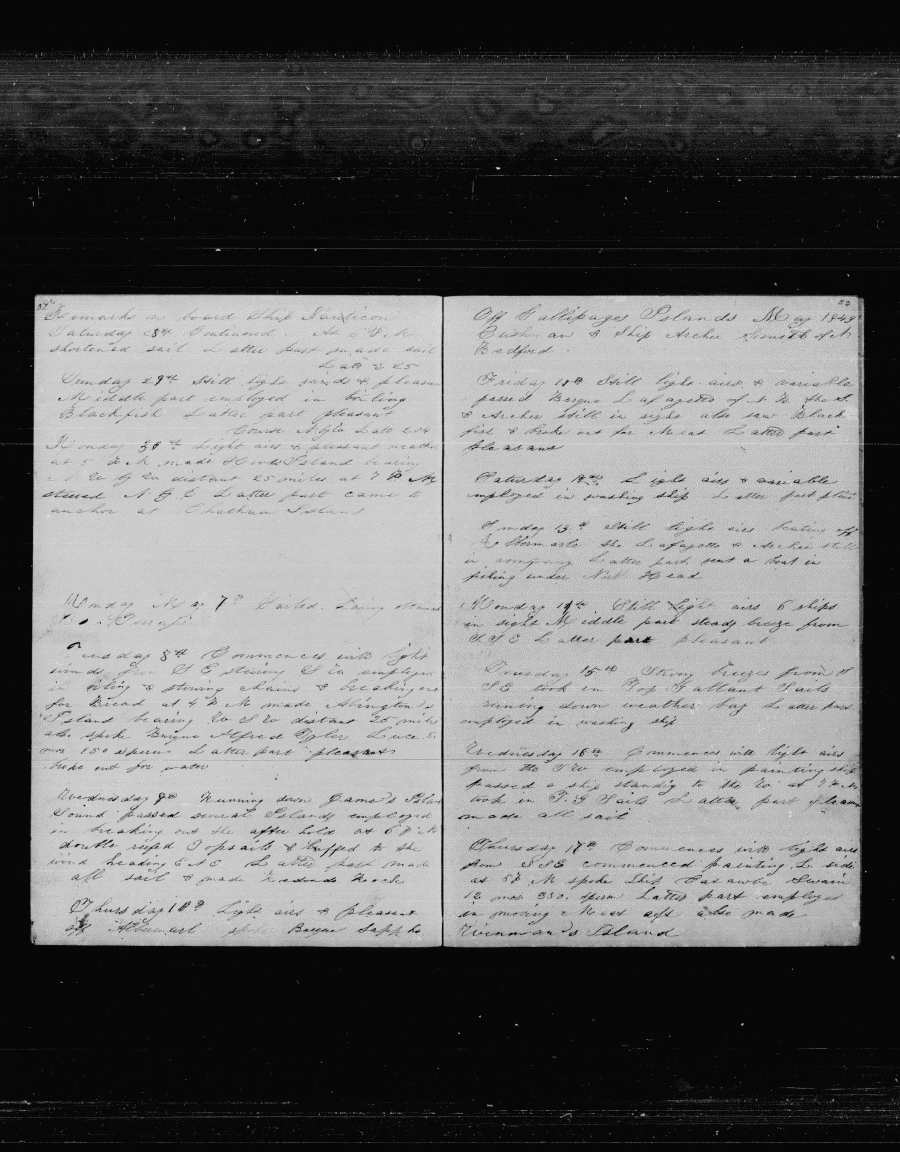 Remarks on board Ship
Saturday 28th Continued. At 6 P M
shortened sail Latter part made sail
Latt 3 25
Sunday 29th Still light winds & pleasant
Middle part employed in boiling
Blackfish Latter part pleasant
Course Latt 2 04
Monday 30th Light airs & pleasant weather
at 5 P M made Hoods Island bearing
N W by W distant 25 miles at 7 P M
steered N by E Latter part came to
anchor at Chatham Island
Monday May 7th Sailed.
Tuesday 8th Commences with light
winds from S E steering S W employed
in & stowing chains & breaking out
for Bread at 4 P M made Abington's
Island bearing W S W distant 25 miles
also spoke Barque Alfred Tyler Luce 5
mos 150 sperm Latter part pleasant
broke out for water
Wednesday 9th Running down James's Island
Sound passed several Islands employed
in breaking out the after hold at 6 P M
double reefed Topsails & luffed to the
wind heading E N E Latter part made
all sail & made Redondo Rock
Thursday 10th Light airs & pleasant
off Albemarl spoke Barque Sappho
52
Off Gallipagos Islands May 1849
Cushman & Ship Archer Smith of N
Bedford.
Friday 11th Still light airs & variable
passed Barque Lafayette of N B. the S.
& Archer still in sight also saw Black-
fish & broke out for Meat Latter part
pleasant
Saturday 12th Light airs & variable
employed in washing ship Latter part pleas
Sunday 13th Still light airs beating off
Albermarle the Lafayette & Archer still
in company Latter part sent a boat in
fishing under Head
Monday 14th Still Light airs 6 ships
in sight Middle part steady breeze from
S S E Latter part pleasant
Tuesday 15th Strong breezes from S
S E took in Top Gallant Sails
running down weather bay Latter part
employed in washing ship
Wednesday 16th Commences with light airs
from the S W employed in painting ship
passed a ship standing to the W at 7 P. M.
took in T. G Sails Latter part pleasant
made all sail
Thursday 17th Commences with light airs
from S S E commenced painting L. side
at 5 P M spoke Ship Swain
12 mos 350. sperm Latter part employed
in moving Meat aft also made
Wenman's Island